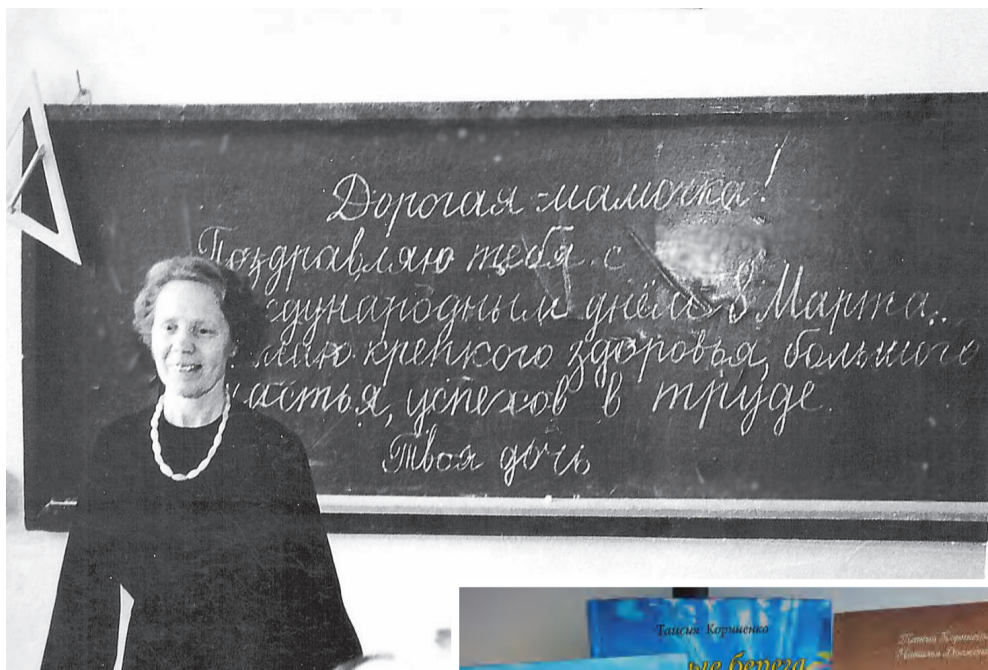 Дорогая мамочка!
Поздравляю тебя с
еждународным днём 8 Марта.
лаю крепкого здоровья, большого
частья, успехов в труде.
Твоя дочь
Таисия Корниенко
ые берега